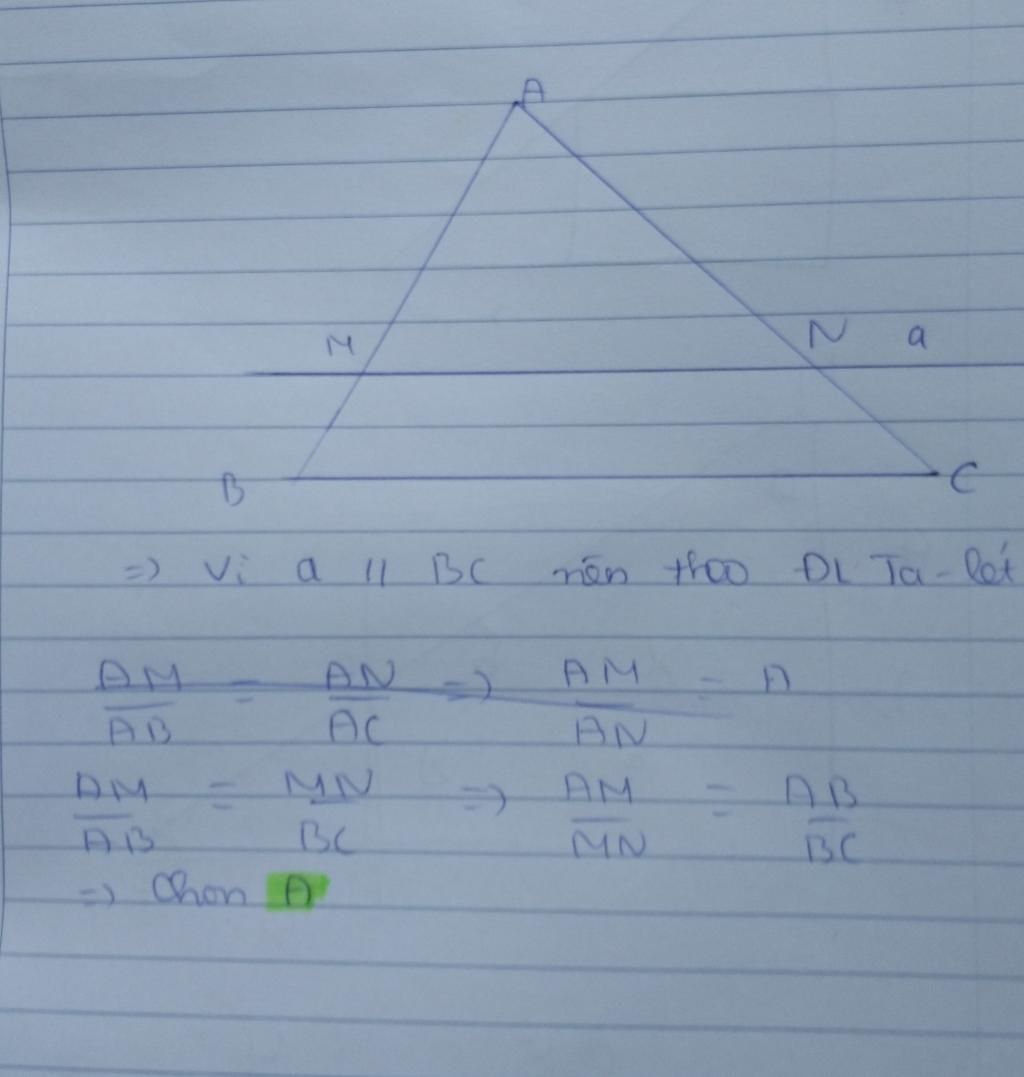 A
M N a
B C
=> Vì a // BC nên theo ĐL Ta-lét
AM/AB = AN/AC => AM/AN = A
AM/AB = MN/BC => AM/MN = AB/BC
=> Chọn A